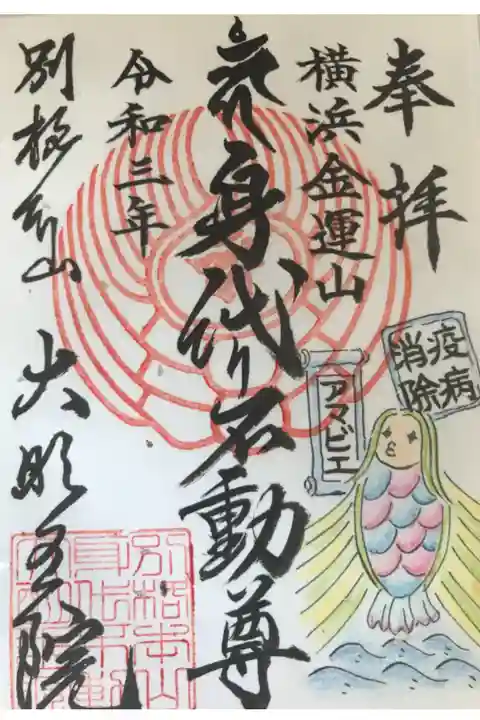 奉拝
横浜金運山
身代り不動尊
令和三年
別格本山 大明王院
疫病
消除
アマビエ
別格本山